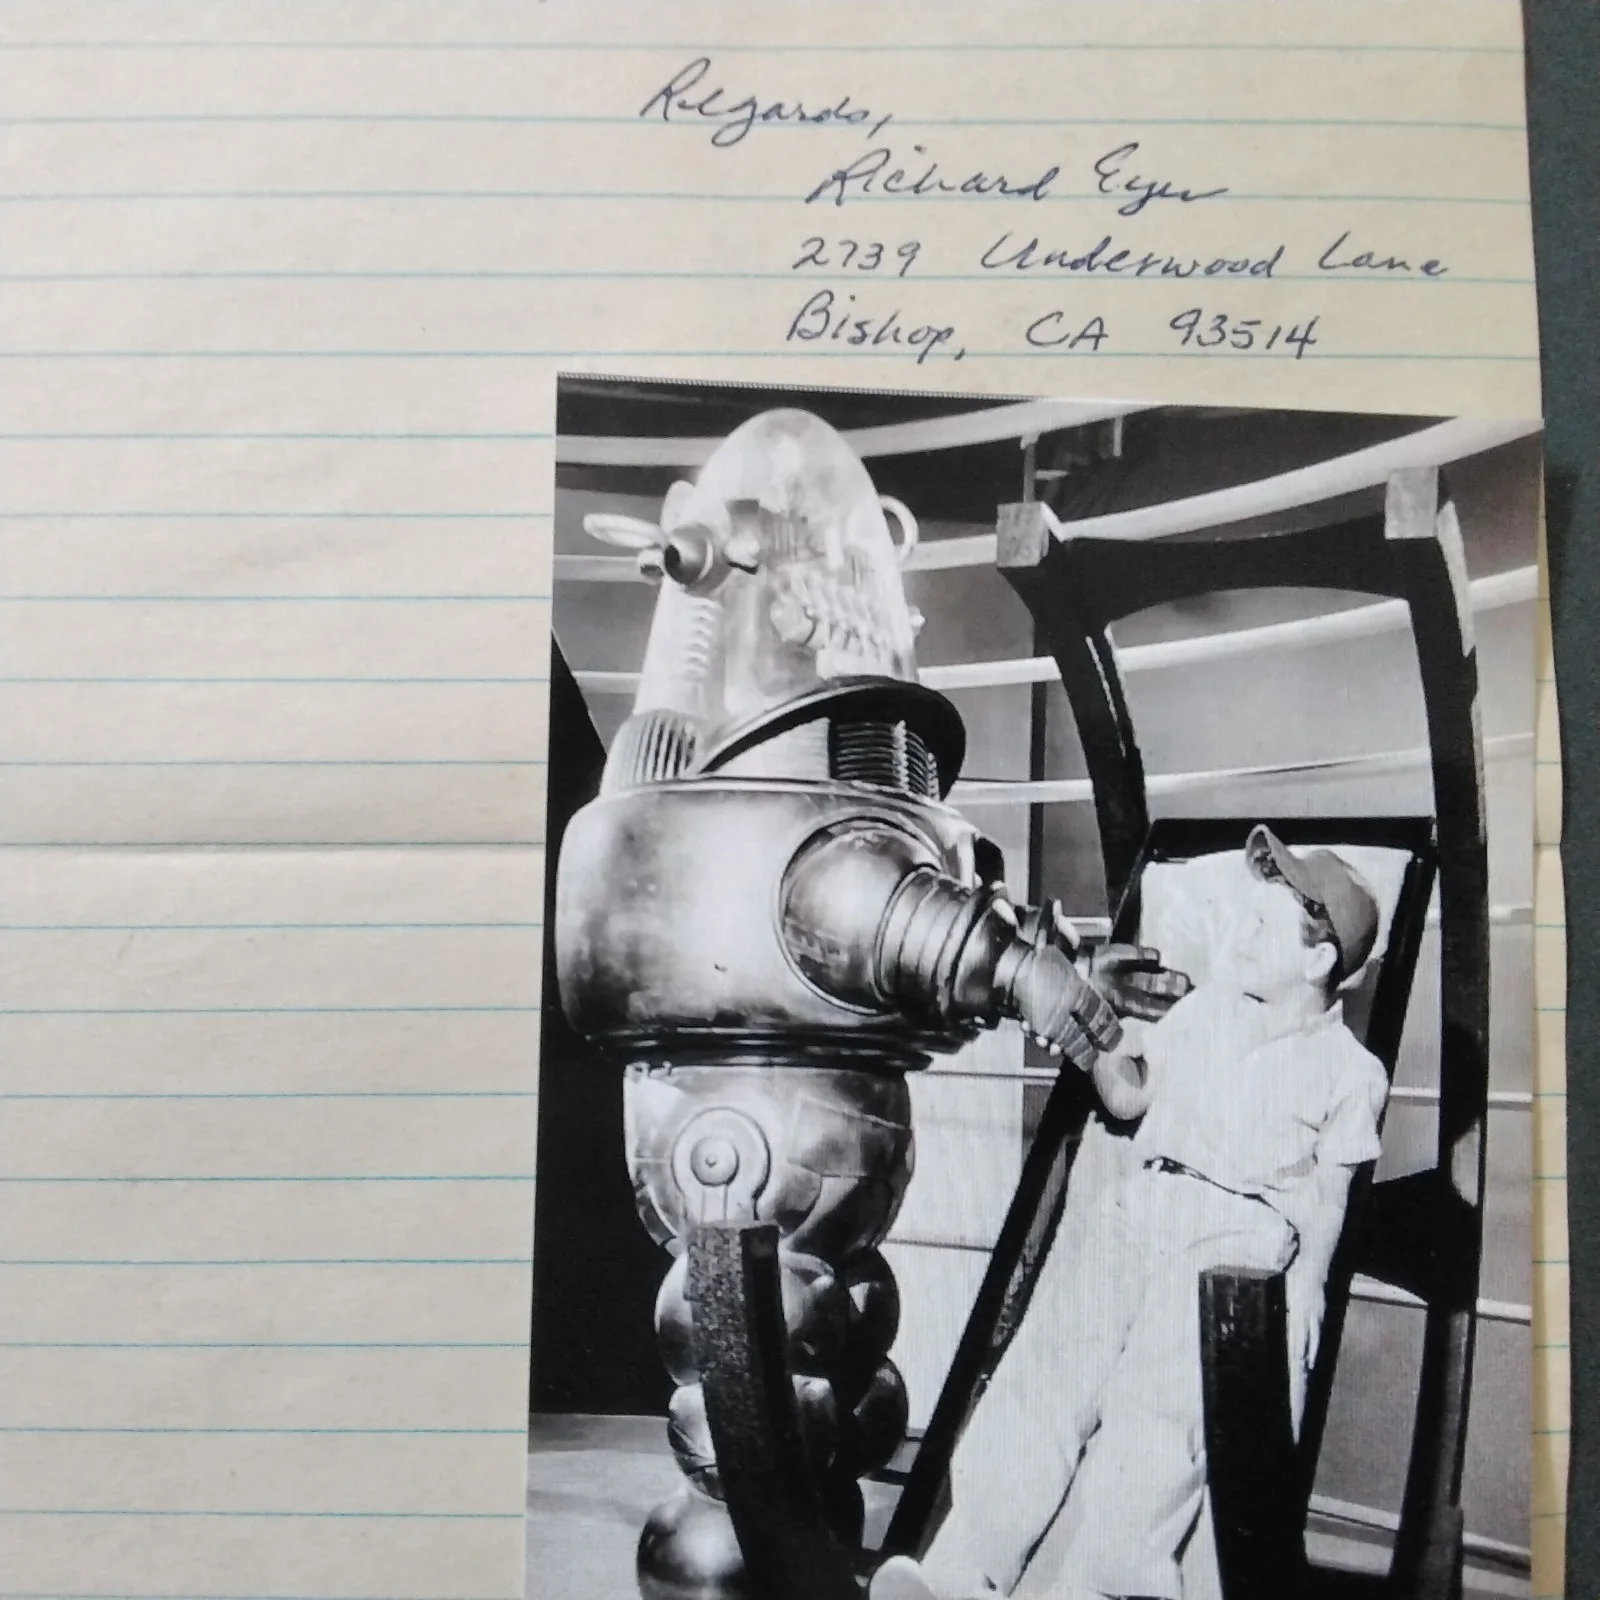 Regards,
Richard Eyer
2739 Underwood Lane
Bishop, CA 93514